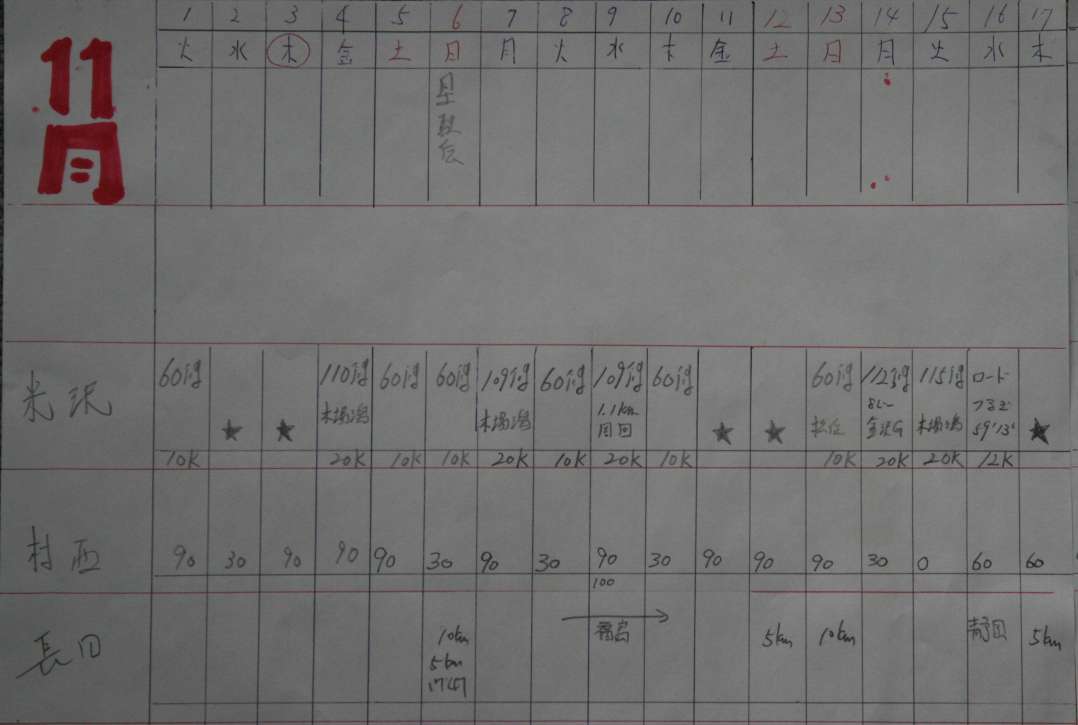 11月
1 2 3 4 5 6 7 8 9 10 11 12 13 14 15 16 17
火 水 木 金 土 日 月 火 水 木 金 土 日 月 火 水 木
米沢
60分 110分 60分 60分 109分 60分 109分 60分 60分 112分 115分 ロード
木場潟 木場潟 1.1km 木場潟
周回 59'13"
★ ★ ★ ★ ★
10K 20K 10K 10K 20K 10K 20K 10K 10K 20K 20K 12K
村西
90 30 90 90 90 30 90 30 90 30 90 90 90 30 0 60 60
100
長田
福島
10km 5km 10km 5km
5km
17'47